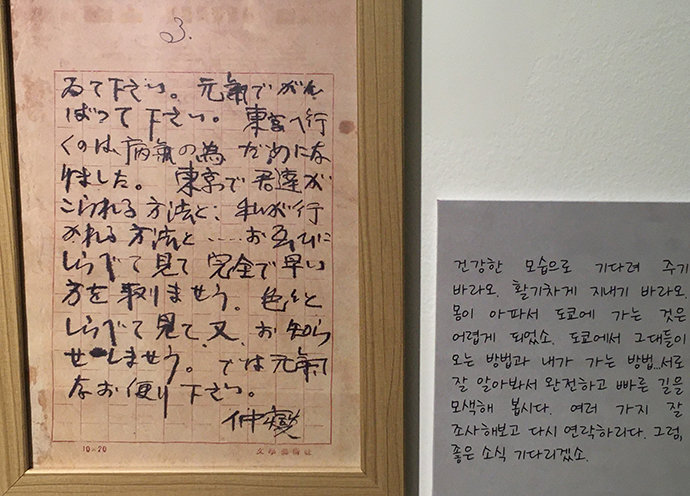 3.
ゐて下さい。元氣でがん
ばつて下さい。東京へ行
くのは、病氣の為だめにな
りました。東京で君達が
こられる方法と、私が行
かれる方法と……お互ひに
しらべて見て完全で早い
方を取りませう。色々と
しらべて見て、又、お知ら
せしませう。では元氣
なお便り下さい。
仲燮
10×20
文學藝術社
건강한 모습으로 기다려 주기
바라오. 활기차게 지내기 바라오.
몸이 아파서 도쿄에 가는 것은
어렵게 되었소. 도쿄에서 그대들이
오는 방법과 내가 가는 방법...서로
잘 알아봐서 완전하고 빠른 길을
모색해 봅시다. 여러 가지 잘
조사해보고 다시 연락하리다. 그럼,
좋은 소식 기다리겠소.